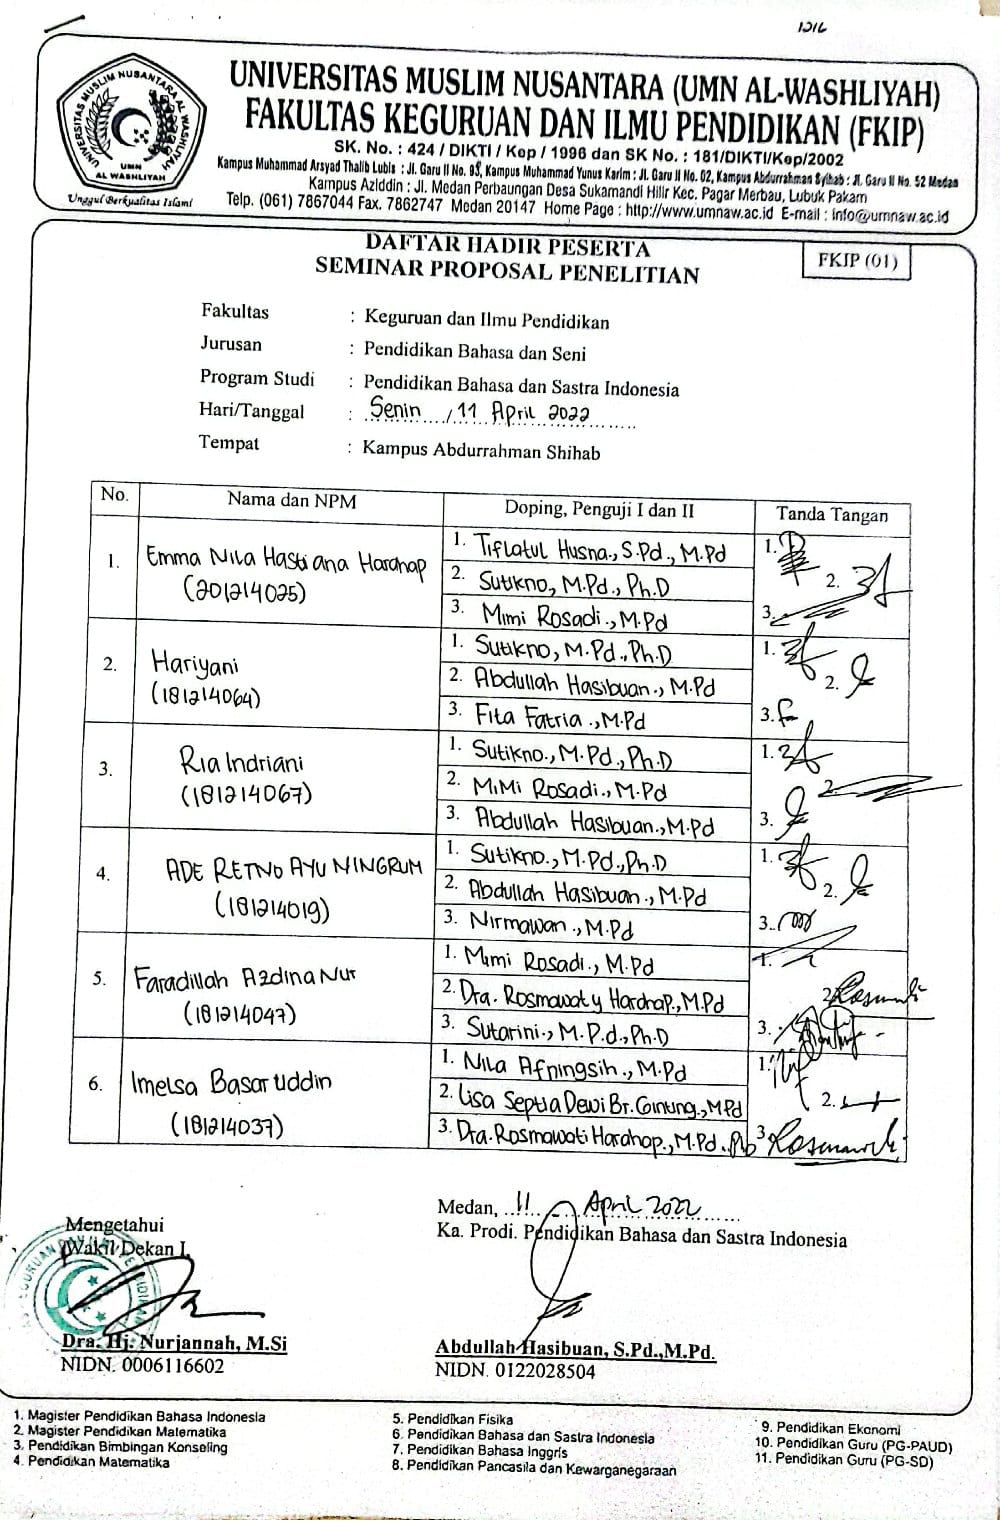 1216
UNIVERSITAS MUSLIM NUSANTARA AL WASHLIYAH
UMN
AL WASHLIYAH
Unggul Berkualitas Islami
UNIVERSITAS MUSLIM NUSANTARA (UMN AL-WASHLIYAH)
FAKULTAS KEGURUAN DAN ILMU PENDIDIKAN (FKIP)
SK. No. : 424 / DIKTI / Kep / 1996 dan SK No. : 181/DIKTI/Kep/2002
Kampus Muhammad Arsyad Thalib Lubis : Jl. Garu II No. 93, Kampus Muhammad Yunus Karim : Jl. Garu II No. 02, Kampus Abdurrahman Syihab : Jl. Garu II No. 52 Medan
Kampus Aziddin : Jl. Medan Perbaungan Desa Sukamandi Hilir Kec. Pagar Merbau, Lubuk Pakam
Telp. (061) 7867044 Fax. 7862747 Medan 20147 Home Page : http://www.umnaw.ac.id E-mail : info@umnaw.ac.id
DAFTAR HADIR PESERTA
SEMINAR PROPOSAL PENELITIAN
FKIP (01)
Fakultas : Keguruan dan Ilmu Pendidikan
Jurusan : Pendidikan Bahasa dan Seni
Program Studi : Pendidikan Bahasa dan Sastra Indonesia
Hari/Tanggal : Senin / 11 April 2022
Tempat : Kampus Abdurrahman Shihab
No. Nama dan NPM Doping, Penguji I dan II Tanda Tangan
1. Emma Nila Hastiana Harahap
(201214025)
1. Tiflatul Husna., S.Pd., M.Pd
2. Sutikno, M.Pd., Ph.D
3. Mimi Rosadi., M.Pd
1.
2.
3.
2. Hariyani
(181214064)
1. Sutikno, M.Pd., Ph.D
2. Abdullah Hasibuan., M.Pd
3. Fita Fatria., M.Pd
1.
2.
3.
3. Ria Indriani
(181214067)
1. Sutikno., M.Pd., Ph.D
2. Mimi Rosadi., M.Pd
3. Abdullah Hasibuan., M.Pd
1.
2.
3.
4. ADE RETNO AYU NINGRUM
(181214019)
1. Sutikno., M.Pd., Ph.D
2. Abdullah Hasibuan., M.Pd
3. Nirmawan., M.Pd
1.
2.
3.
5. Faradillah Azdina Nur
(181214047)
1. Mimi Rosadi., M.Pd
2. Dra. Rosmawaty Harahap., M.Pd
3. Sutarini., M.P.d., Ph.D
1.
2.
3.
6. Imelsa Basaruddin
(181214037)
1. Nila Afningsih., M.Pd
2. Lisa Septia Dewi Br. Ginting., M.Pd
3. Dra. Rosmawati Harahap., M.Pd.
1.
2.
3.
Medan, 11 April 2022
Mengetahui
Wakil Dekan I,
Ka. Prodi. Pendidikan Bahasa dan Sastra Indonesia
Dra. Hj. Nurjannah, M.Si
NIDN. 0006116602
Abdullah Hasibuan, S.Pd.,M.Pd.
NIDN. 0122028504
1. Magister Pendidikan Bahasa Indonesia
2. Magister Pendidikan Matematika
3. Pendidikan Bimbingan Konseling
4. Pendidikan Matematika
5. Pendidikan Fisika
6. Pendidikan Bahasa dan Sastra Indonesia
7. Pendidikan Bahasa Inggris
8. Pendidikan Pancasila dan Kewarganegaraan
9. Pendidikan Ekonomi
10. Pendidikan Guru (PG-PAUD)
11. Pendidikan Guru (PG-SD)